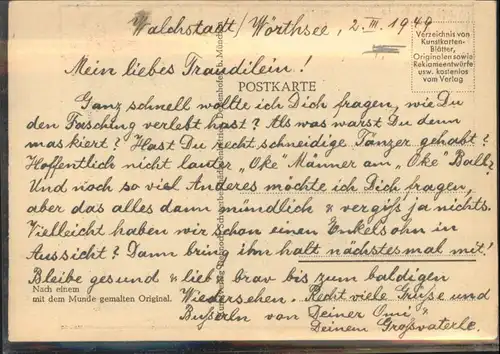 Walchstadt/Wörthsee, 2. III. 1949
Verzeichnis von
Kunstkarten-
Blätter,
Originalen sowie
Reklameentwürfe
usw. kostenlos
vom Verlag
Mein liebes Traudilein!
POSTKARTE
Ganz schnell wollte ich Dich fragen, wie Du
den Fasching verlebt hast? Als was warst Du denn
maskiert? Hast Du recht schneidige Tänzer gehabt?
Hoffentlich nicht lauter „Oke" Männer am „Oke" Ball?
Und noch so viel Anderes möchte ich Dich fragen,
aber das alles dann mündlich & vergiß ja nichts.
Vielleicht haben wir schon einen Enkelsohn in
Aussicht? Dann bring ihn halt nächstesmal mit!
Bleibe gesund & lieb & brav bis zum baldigen
Nach einem
mit dem Munde gemalten Original.
Wiedersehen. Recht viele Grüße und
Busserln von Deiner Omi &
Deinem Großvaterle.